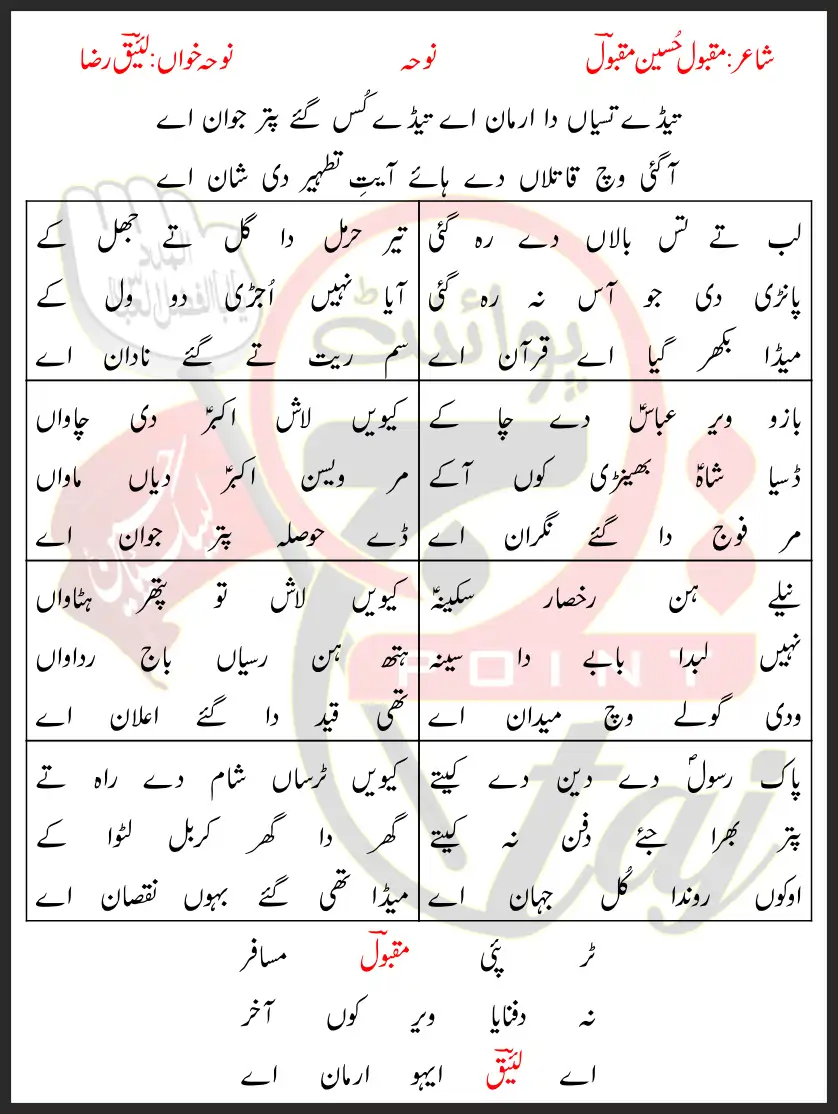 شاعر: مقبول حُسین مقبولؔ
نوحہ
نوحہ خواں: لئیقؔ رضا
تیڈے تسیاں دا ارمان اے تیڈے کُس گئے پتر جوان اے
آ گئی وچ قاتلاں دے ہائے آیتِ تطہیر دی شان اے
لب تے تس بالاں دے رہ گئی
پانڑی دی جو آس نہ رہ گئی
میڈا بکھر گیا اے قرآن اے
تیر حرمل دا گل تے جھل کے
آیا نہیں اُجڑی دو ول کے
سم ریت تے گئے نادان اے
بازو ویر عباسؑ دے چا کے
ڈسیا شاہؑ بھینڑی کوں آ کے
مر فوج دا گئے نگران اے
کیویں لاش اکبرؑ دی چاواں
مر ویسن اکبرؑ دیاں ماواں
ڈے حوصلہ پتر جوان اے
نیلے ہن رخصار سکینہؑ
نہیں لبدا بابے دا سینہ
ودی گولے وچ میدان اے
کیویں لاش تو پتھر ہٹاواں
ہتھ ہن رسیاں باج رداواں
تھی قید دا گئے اعلان اے
پاک رسولؐ دے دین دے کیتے
پتر بھرا جئے دفن نہ کیتے
اوکوں روندا کُل جہان اے
کیویں ٹرساں شام دے راہ تے
گھر دا گھر کربل لٹوا کے
میڈا تھی گئے بہوں نقصان اے
ٹر پئی مقبولؔ مسافر
نہ دفنایا ویر کوں آخر
اے لئیقؔ ایہو ارمان اے
پوائنٹ
POINT
taj
لبیک یا حسین